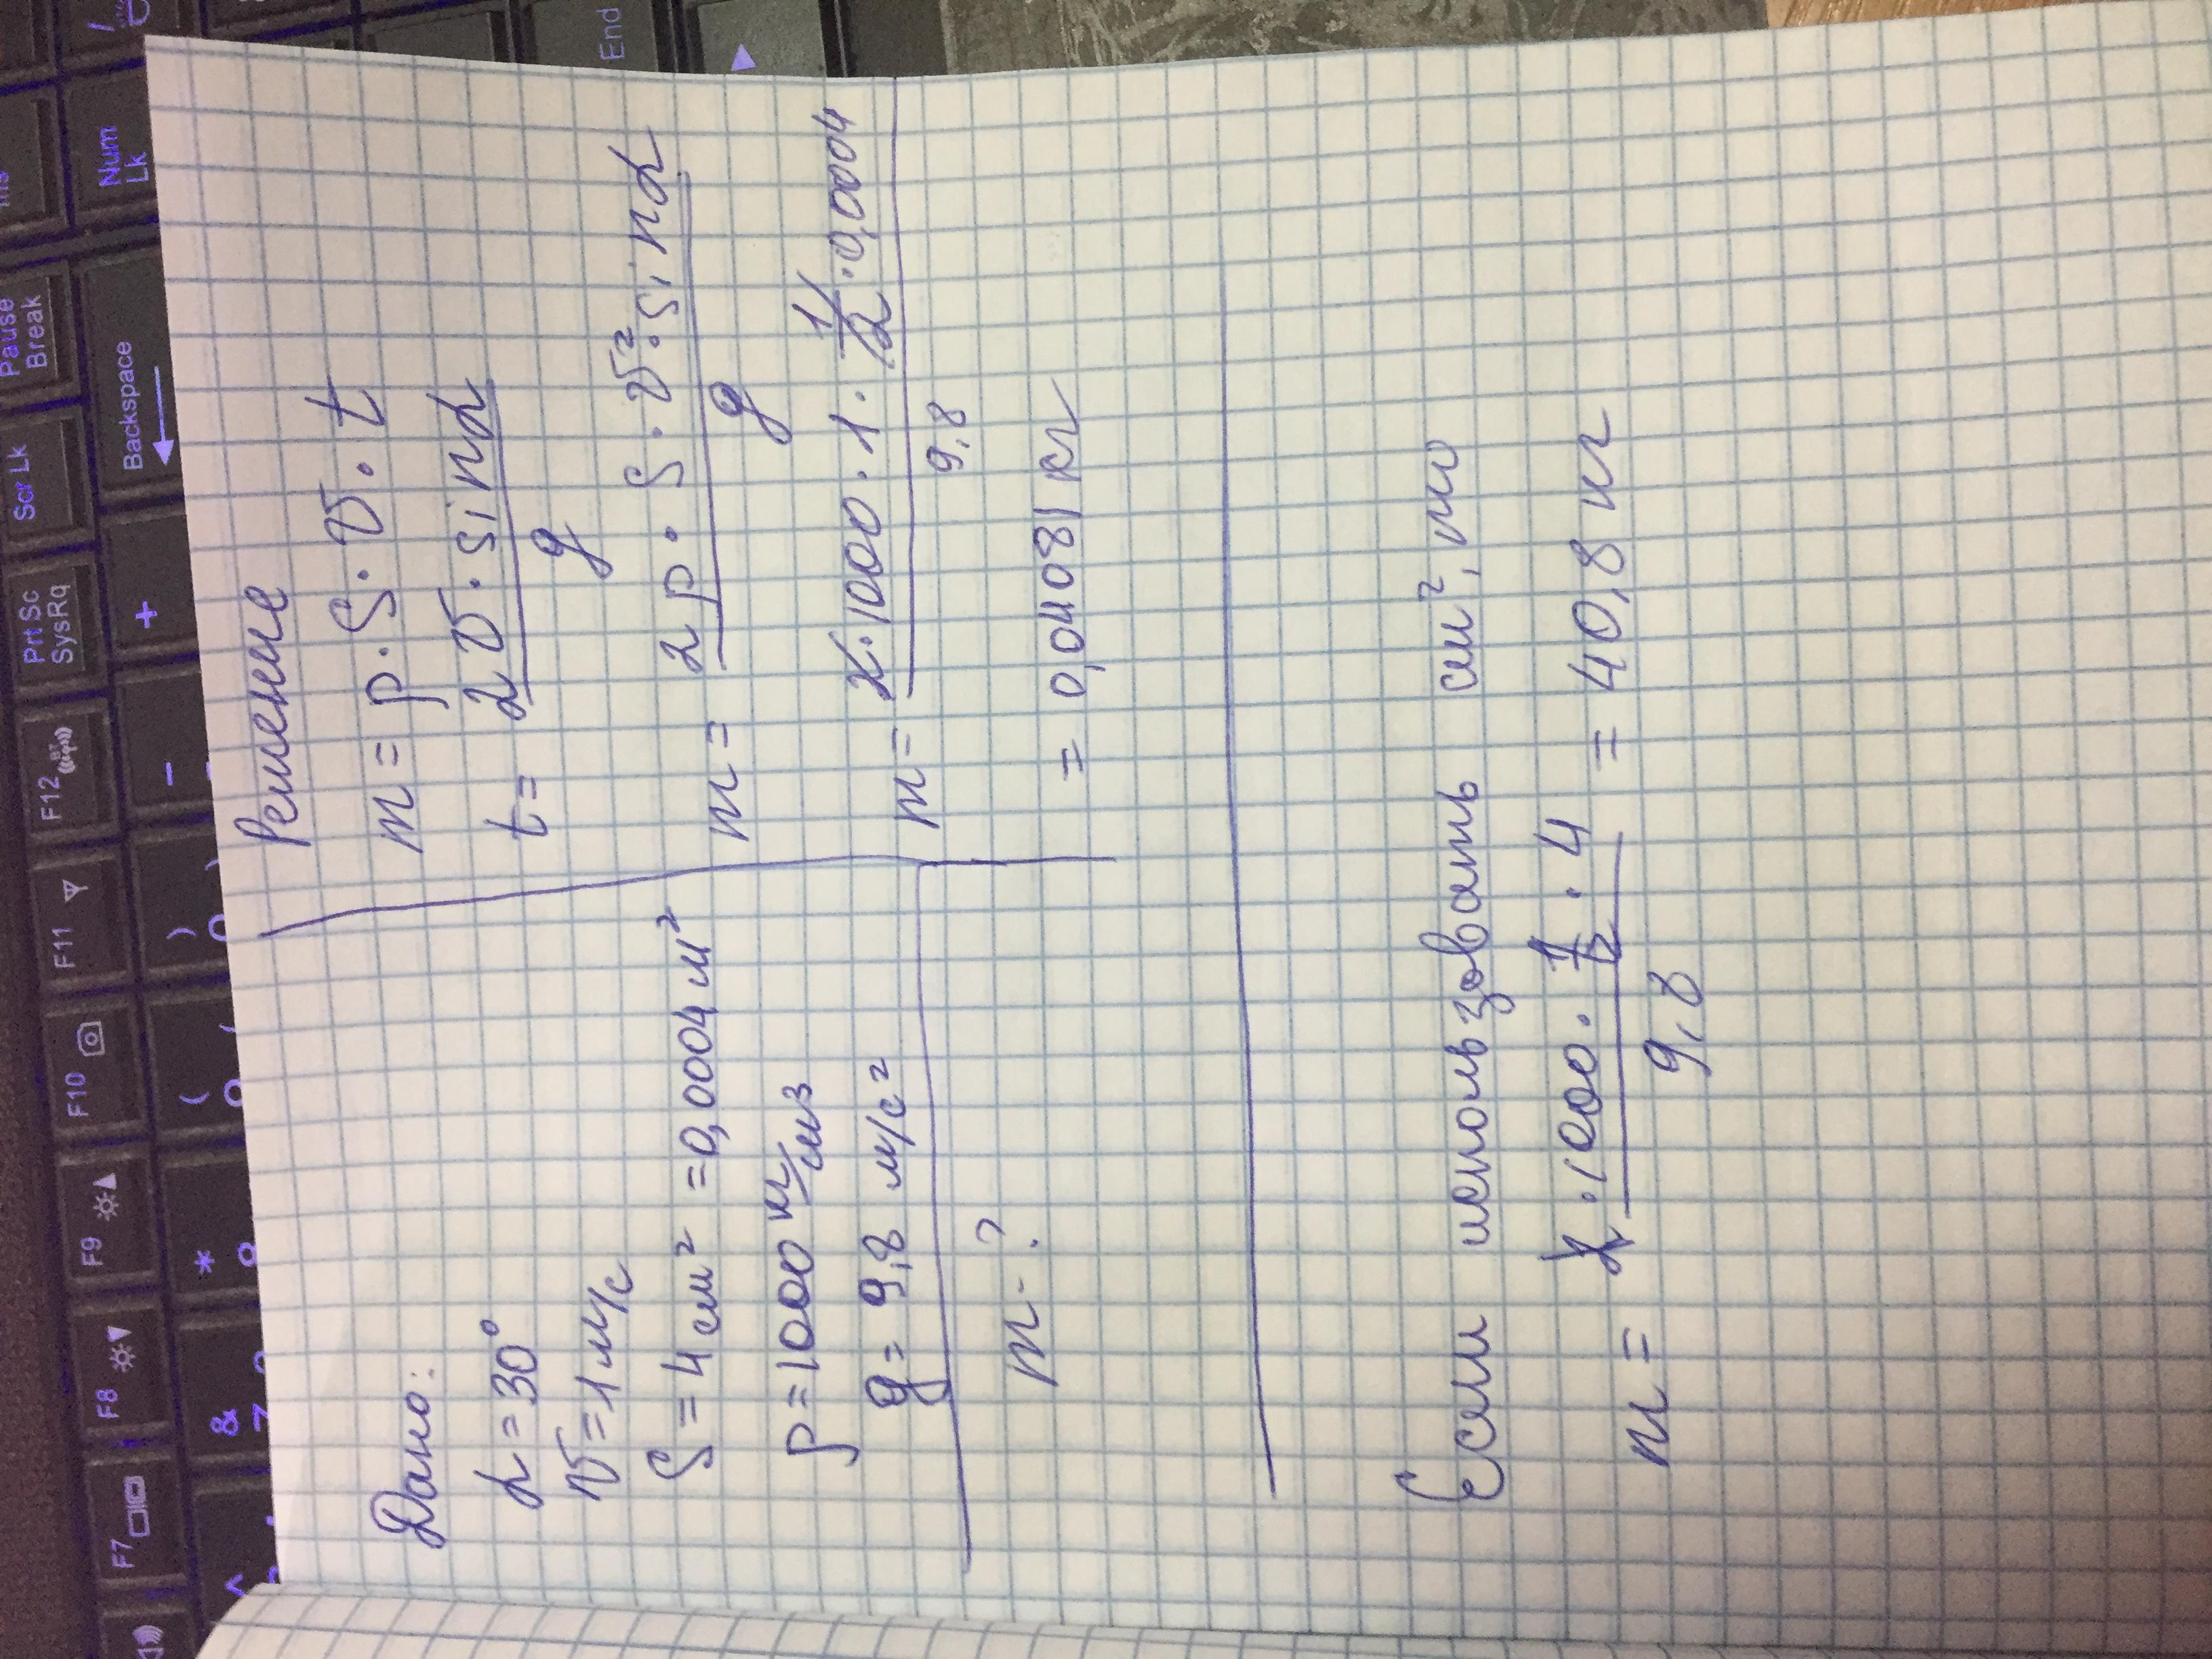 Дано:
α = 30°
v = 1 м/с
S = 4 см² = 0,0004 м²
ρ = 1000 кг/м3
g = 9,8 м/с²
m - ?
Решение
m = ρ · S · v · t
t = 2v · sinα / g
m = 2ρ · S · v² · sinα / g
m = 2 · 1000 · 1 · 1/2 · 0,0004 / 9,8
= 0,04081 кг
Если использовать см², то
m = 2 · 1000 · 1/2 · 4 / 9,8 = 40,8 кг
F7
F8
F9
F10
F11
F12
Prt Sc
SysRq
Scr Lk
Pause
Break
Backspace
Num
Lk
End
&
*
(
)
-
+